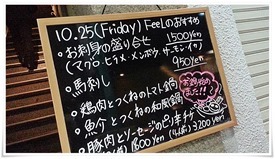 10.25(Friday) Feelのおすすめ
・お刺身の盛り合せ 1500yen
(マグロ・ヒラメ・メンボウ・サーモン・イカ)
・馬刺し 950yen
・鶏肉とつくねのトマト鍋
・魚介とつくねの和風鍋
・豚肉とソーセージのピリ辛チゲ
1600yen (4人前) 3200yen!
お鍋始めました!!